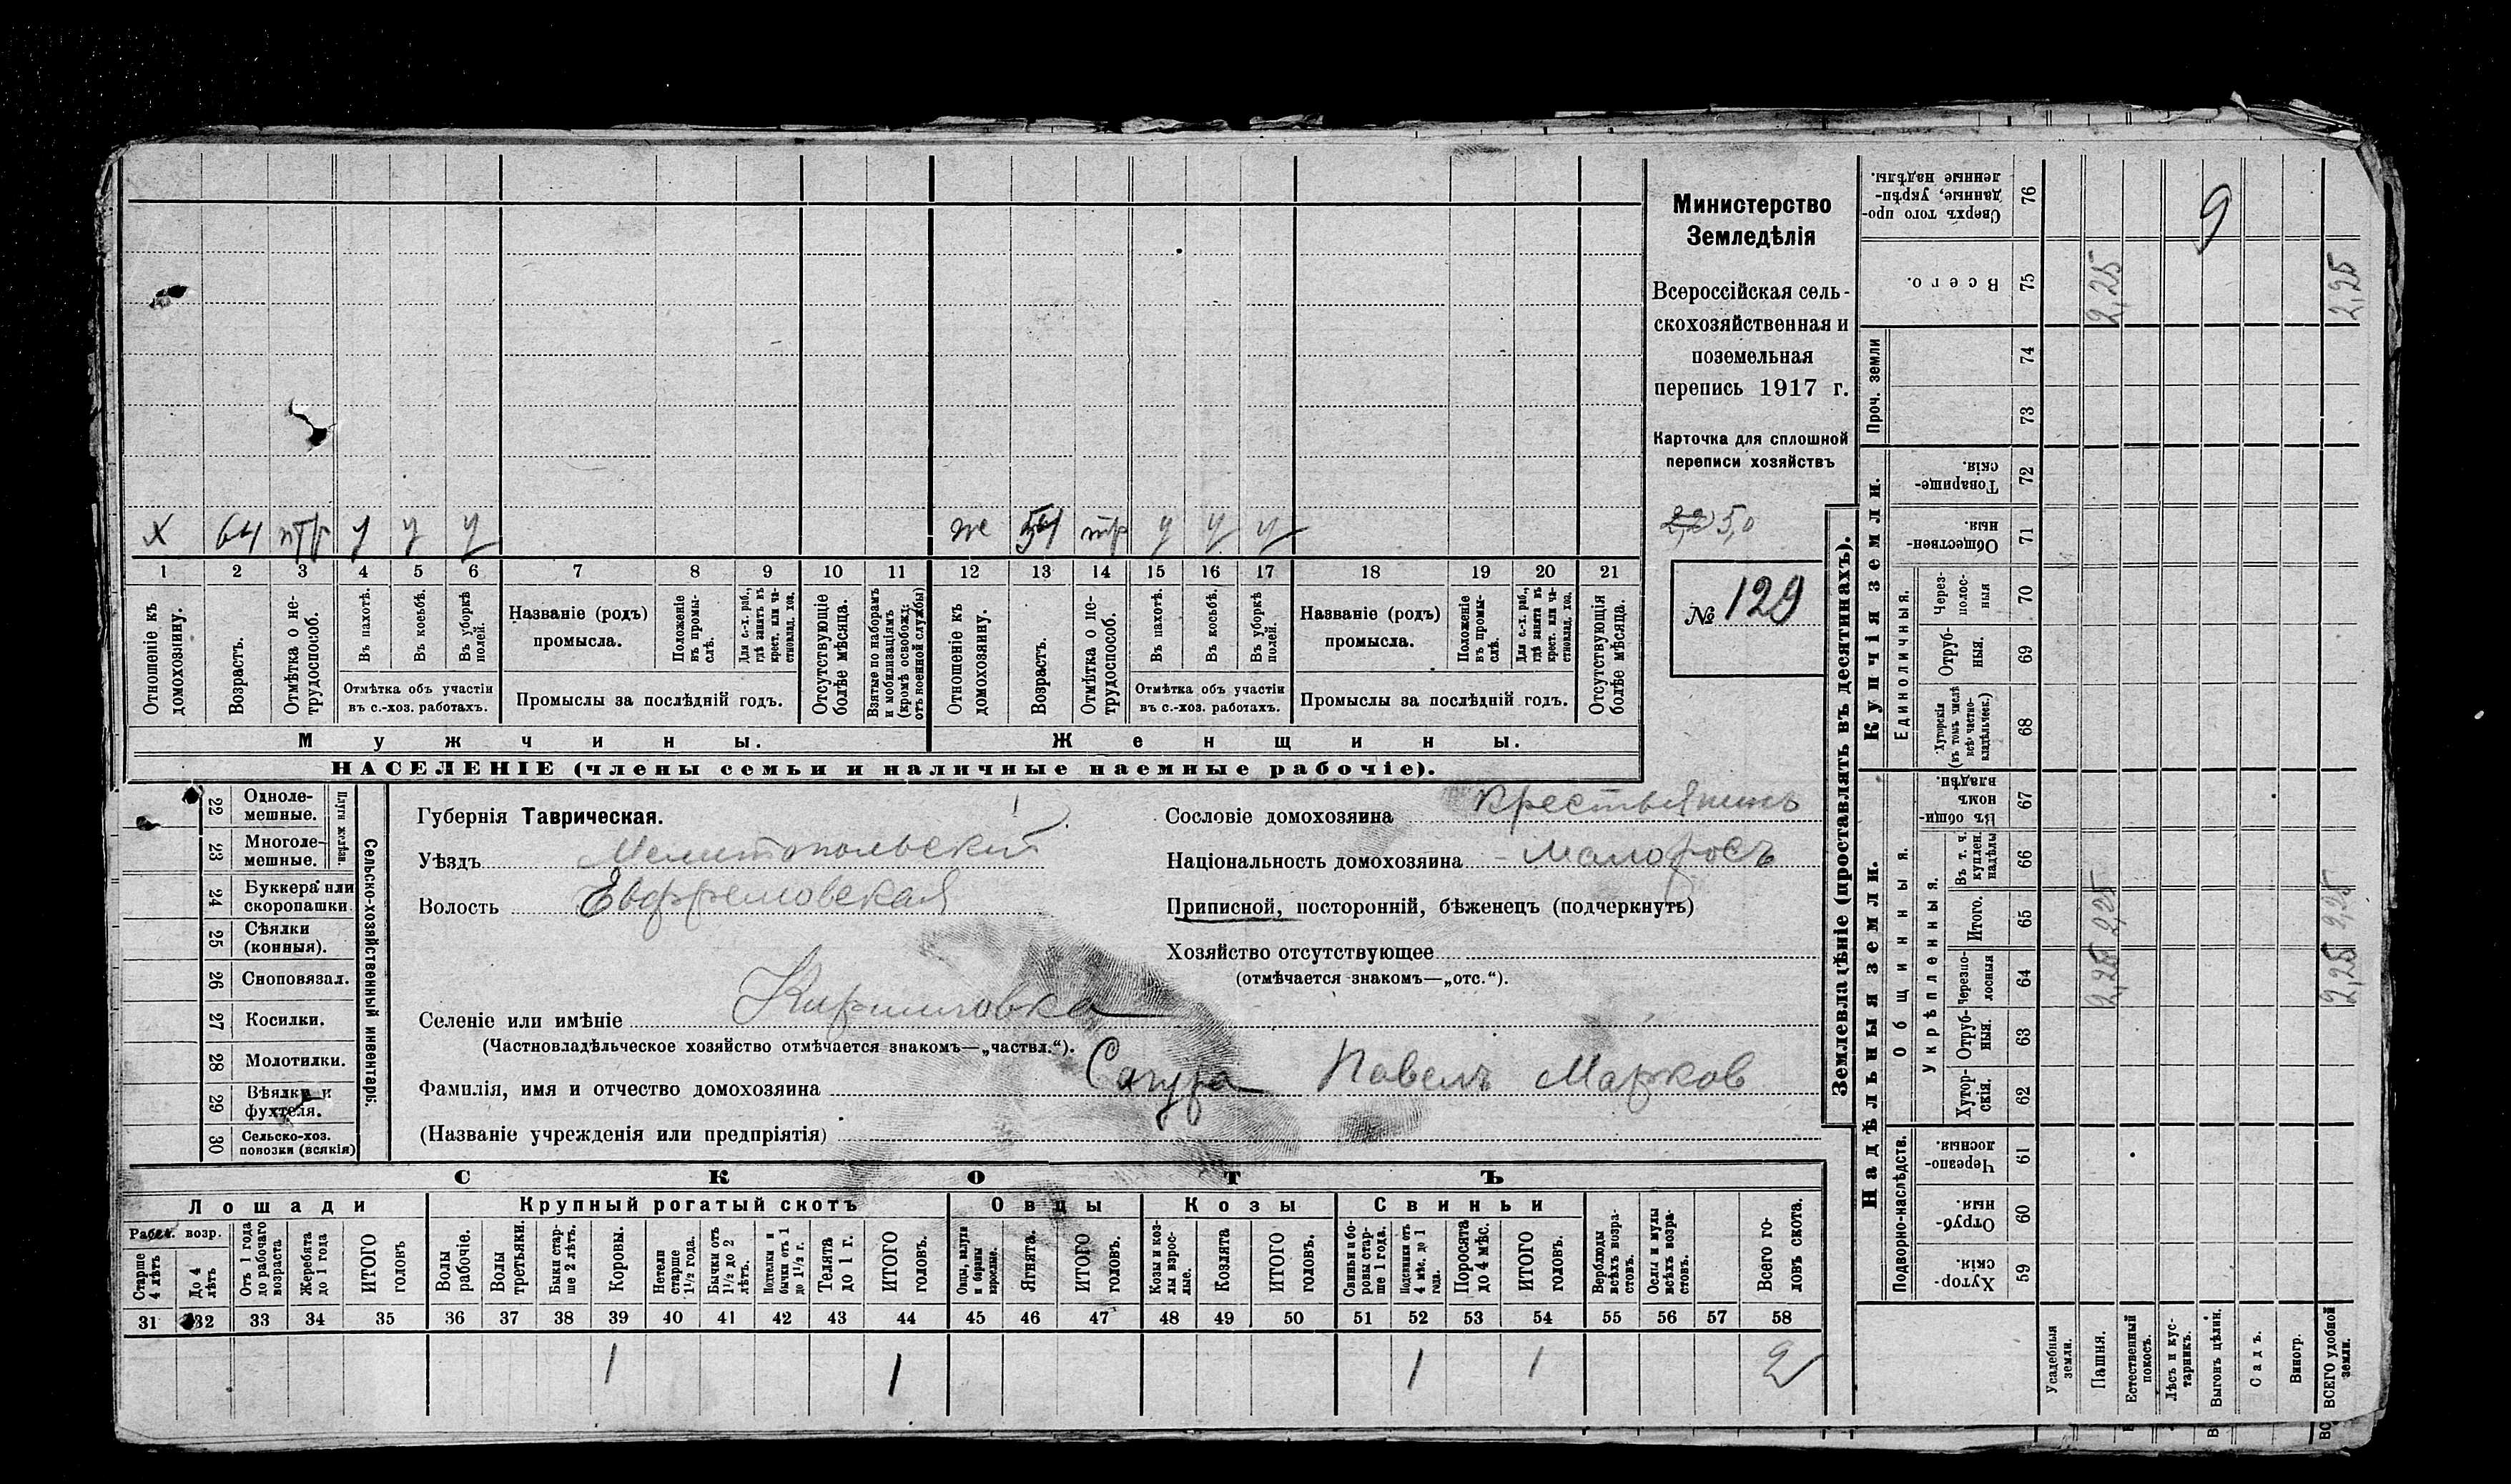 Министерство
Земледѣлія
Всероссійская сель-
скохозяйственная и
поземельная
перепись 1917 г.
Карточка для сплошной
переписи хозяйствъ
2,2 5,0
№ 129
х 64 нтр у у у же 54 нтр у у у
1 2 3 4 5 6 7 8 9 10 11 12 13 14 15 16 17 18 19 20 21
Отношеніе къ домохозяину.
Возрастъ.
Отмѣтка о не-трудоспособ.
Въ пахотѣ.
Въ косьбѣ.
Въ уборкѣ полей.
Отмѣтка объ участіи
въ с.-хоз. работахъ.
Названіе (родъ)
промысла.
Положеніе въ промы-слѣ.
Для с.-х. раб., гдѣ занятъ въ крест. или ча-стновлад. хоз.
Промыслы за послѣдній годъ.
Отсутствующіе болѣе мѣсяца.
Взятые по наборамъ и мобилизаціямъ (кромѣ освобожд. отъ военной службы)
Отношеніе къ домохозяину.
Возрастъ.
Отмѣтка о не-трудоспособ.
Въ пахотѣ.
Въ косьбѣ.
Въ уборкѣ полей.
Отмѣтка объ участіи
въ с.-хоз. работахъ.
Названіе (родъ)
промысла.
Положеніе въ промы-слѣ.
Для с.-х. раб., гдѣ занята въ крест. или ча-стновлад. хоз.
Промыслы за послѣдній годъ.
Отсутствующія болѣе мѣсяца.
Мужчины.
Женщины.
НАСЕЛЕНІЕ (члены семьи и наличные наемные рабочіе).
Сельско-хозяйственный инвентарь.
Плуги желѣзн.
22 Одноле-мешные.
23 Многоле-мешные.
24 Буккера или скоропашки
25 Сѣялки (конныя).
26 Сноповязал.
27 Косилки.
28 Молотилки.
29 Вѣялки и фухтеля.
30 Сельско-хоз. повозки (всякія)
Губернія Таврическая.
Уѣздъ Мелитопольскій
Волость Ефремовская
Селеніе или имѣніе Кирилловка
(Частновладѣльческое хозяйство отмѣчается знакомъ—„частвл.“).
Фамилія, имя и отчество домохозяина Сагура Павелъ Марков
(Названіе учрежденія или предпріятія)
Сословіе домохозяина Крестьянинъ
Національность домохозяина Малоросъ
Приписной, посторонній, бѣженецъ (подчеркнуть)
Хозяйство отсутствующее
(отмѣчается знакомъ—„отс.“).
СКОТЪ
Лошади
Рабоч. возр.
Старше 4 лѣтъ
До 4 лѣтъ
Отъ 1 года до рабочаго возраста
Жеребята до 1 года
ИТОГО головъ
Крупный рогатый скотъ
Волы рабочіе.
Волы третьяки.
Быки стар-ше 2 лѣтъ.
Коровы.
Нетели старше 1½ года.
Бычки отъ 1½ до 2 лѣтъ.
Подтелки и бычки отъ 1 до 1½ г.
Телята до 1 г.
ИТОГО головъ.
Овцы
Овцы, валухи и бараны взрослые.
Ягнята.
ИТОГО головъ.
Козы
Козы и коз-лы взрос-лые.
Козлята
ИТОГО головъ.
Свиньи
Свиньи и бо-ровы стар-ше 1 года.
Подсвинки отъ 4 мѣс. до 1 года.
Поросята до 4 мѣс.
ИТОГО головъ.
Верблюды всѣхъ возра-стовъ.
Ослы и мулы всѣхъ возра-стовъ.
Всего го-ловъ скота.
31 32 33 34 35 36 37 38 39 40 41 42 43 44 45 46 47 48 49 50 51 52 53 54 55 56 57 58
1 1 1 1 2
Землевладѣніе (проставлять въ десятинахъ).
Надѣльныя земли.
Купчія земли.
Проч. земли
Подворно-наслѣдств.
Общинныя.
Укрѣпленныя.
Единоличныя.
Сверхъ того про-данные, укрѣп-ленные надѣлы. 76 9
Всего. 75 2,25 2,25
74
73
Товарище-скія. 72
Обществен-ныя. 71
Через-полос-ныя 70
Отруб-ныя. 69
Хуторскія (въ томъ числѣ всѣ частно-владѣльческ.) 68
Въ общи-номъ владѣн. 67
Въ т. ч. куплен. надѣлы 66
Итого. 65 2,25 2,25
Черезпо-лосныя 64 2,25 2,25
Отруб-ныя. 63
Хутор-скія. 62
Черезпо-лосныя. 61
Отруб-ныя. 60
Хутор-скія. 59
Усадебныя земли.
Пашня.
Естественный покосъ.
Лѣсъ и кус-тарникъ.
Выгонъ цѣлин.
Садъ.
Виногр.
ВСЕГО удобной земли.